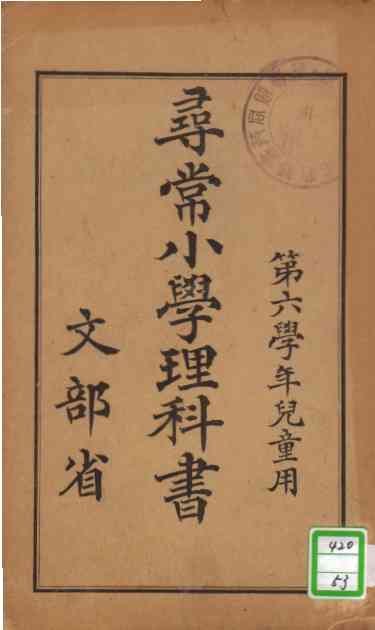 第六學年兒童用
尋常小學理科書
文部省
420
53